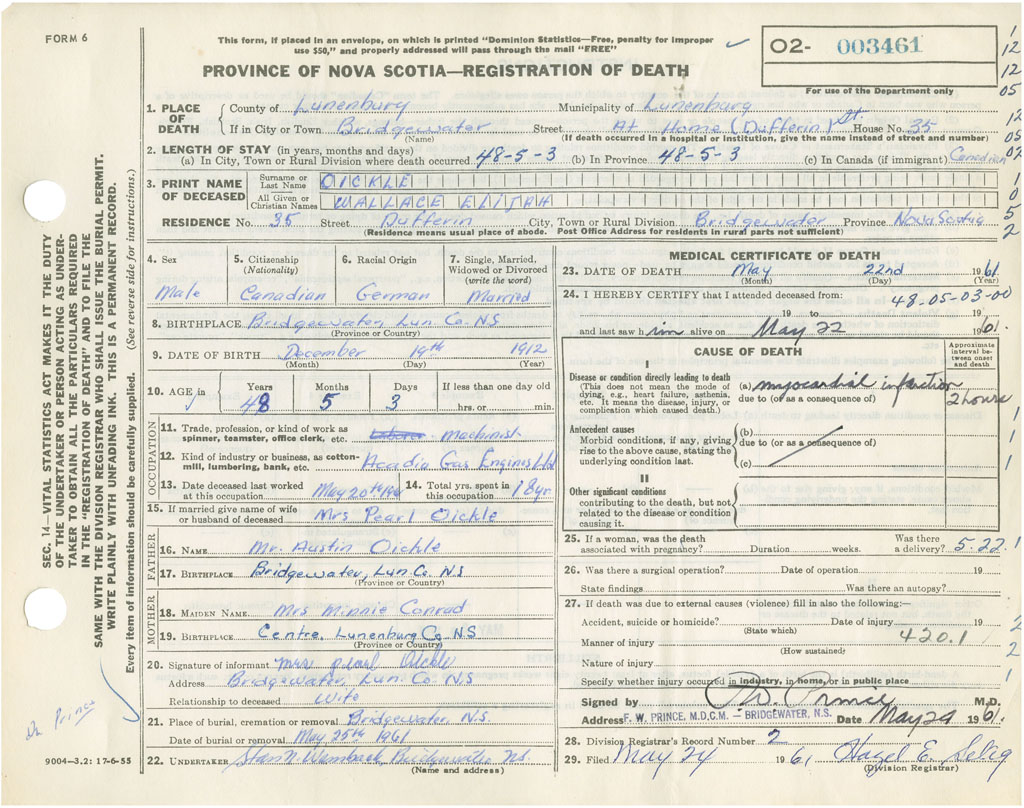 FORM 6
This form, if placed in an envelope, on which is printed "Dominion Statistics—Free, penalty for improper
use $50," and properly addressed will pass through the mail "FREE"
O2- 003461
PROVINCE OF NOVA SCOTIA—REGISTRATION OF DEATH
For use of the Department only
1. PLACE OF DEATH County of Lunenburg Municipality of Lunenburg
If in City or Town Bridgewater Street At Home (Dufferin) St. House No. 35
(Name) (If death occurred in a hospital or institution, give the name instead of street and number)
2. LENGTH OF STAY (in years, months and days)
(a) In City, Town or Rural Division where death occurred 48-5-3 (b) In Province 48-5-3 (c) In Canada (if immigrant) Canadian
3. PRINT NAME OF DECEASED Surname or Last Name OICKLE
All Given or Christian Names WALLACE ELIJAH
RESIDENCE No. 35 Street Dufferin City, Town or Rural Division Bridgewater Province Nova Scotia
(Residence means usual place of abode. Post Office Address for residents in rural parts not sufficient)
4. Sex Male
5. Citizenship (Nationality) Canadian
6. Racial Origin German
7. Single, Married, Widowed or Divorced (write the word) Married
8. BIRTHPLACE Bridgewater, Lun. Co. N.S
(Province or Country)
9. DATE OF BIRTH December 19th 1912
(Month) (Day) (Year)
10. AGE in Years 48 Months 5 Days 3 If less than one day old
hrs. or min.
OCCUPATION
11. Trade, profession, or kind of work as spinner, teamster, office clerk, etc. Laborer Machinist
12. Kind of industry or business, as cotton-mill, lumbering, bank, etc. Acadia Gas Engines Ltd
13. Date deceased last worked at this occupation May 20th 1961 14. Total yrs. spent in this occupation 18 yr
15. If married give name of wife or husband of deceased Mrs Pearl Oickle
FATHER
16. NAME Mr. Austin Oickle
17. BIRTHPLACE Bridgewater, Lun. Co. N.S
(Province or Country)
MOTHER
18. MAIDEN NAME Mrs Minnie Conrad
19. BIRTHPLACE Centre, Lunenburg Co NS
(Province or Country)
20. Signature of informant Mrs Pearl Oickle
Address Bridgewater, Lun. Co. N.S
Relationship to deceased Wife
21. Place of burial, cremation or removal Bridgewater, N.S.
Date of burial or removal May 25th 1961
22. UNDERTAKER Bridgewater NS
(Name and address)
MEDICAL CERTIFICATE OF DEATH
23. DATE OF DEATH May 22nd 1961
(Month) (Day) (Year)
24. I HEREBY CERTIFY that I attended deceased from: 48-05-03-00
19 to 19
and last saw him alive on May 22 1961.
CAUSE OF DEATH
Approximate interval between onset and death
I
Disease or condition directly leading to death
(This does not mean the mode of dying, e.g., heart failure, asthenia, etc. It means the disease, injury, or complication which caused death.)
(a) myocardial infarction 2 hours
due to (or as a consequence of)
Antecedent causes
Morbid conditions, if any, giving rise to the above cause, stating the underlying condition last.
(b)
due to (or as a consequence of)
(c)
II
Other significant conditions
contributing to the death, but not related to the disease or condition causing it.
25. If a woman, was the death associated with pregnancy? Duration weeks. Was there a delivery? 5-22
26. Was there a surgical operation? Date of operation 19
State findings Was there an autopsy?
27. If death was due to external causes (violence) fill in also the following:—
Accident, suicide or homicide? Date of injury 19
(State which)
Manner of injury 420.1
(How sustained)
Nature of injury
Specify whether injury occurred in industry, in home, or in public place
Signed by F W Prince M.D.
Address F. W. PRINCE, M.D.C.M. — BRIDGEWATER, N.S. Date May 24 1961.
28. Division Registrar's Record Number 2
29. Filed May 24 1961 Hazel E. Selig
(Division Registrar)
SEC. 14—VITAL STATISTICS ACT MAKES IT THE DUTY
OF THE UNDERTAKER OR PERSON ACTING AS UNDER-
TAKER TO OBTAIN ALL THE PARTICULARS REQUIRED
IN THE "REGISTRATION OF DEATH" AND TO FILE THE
SAME WITH THE DIVISION REGISTRAR WHO SHALL ISSUE THE BURIAL PERMIT.
WRITE PLAINLY WITH UNFADING INK. THIS IS A PERMANENT RECORD.
Every item of information should be carefully supplied. (See reverse side for instructions.)
Dr Prince
9004—3.2: 17-6-55
1
12
12
05
12
05
02
1
0
5
2
1
1
1
1
2
2
1